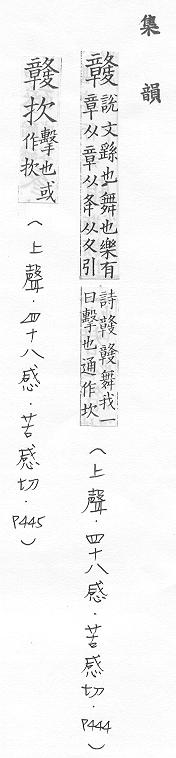 集韻
竷
說文繇也舞也樂有
章从章从夅从夂引
詩竷竷舞我一
曰擊也通作坎
(上聲.四十八感.苦感切.P444)
竷扻
擊也或
作扻
(上聲.四十八感.苦感切.P445)